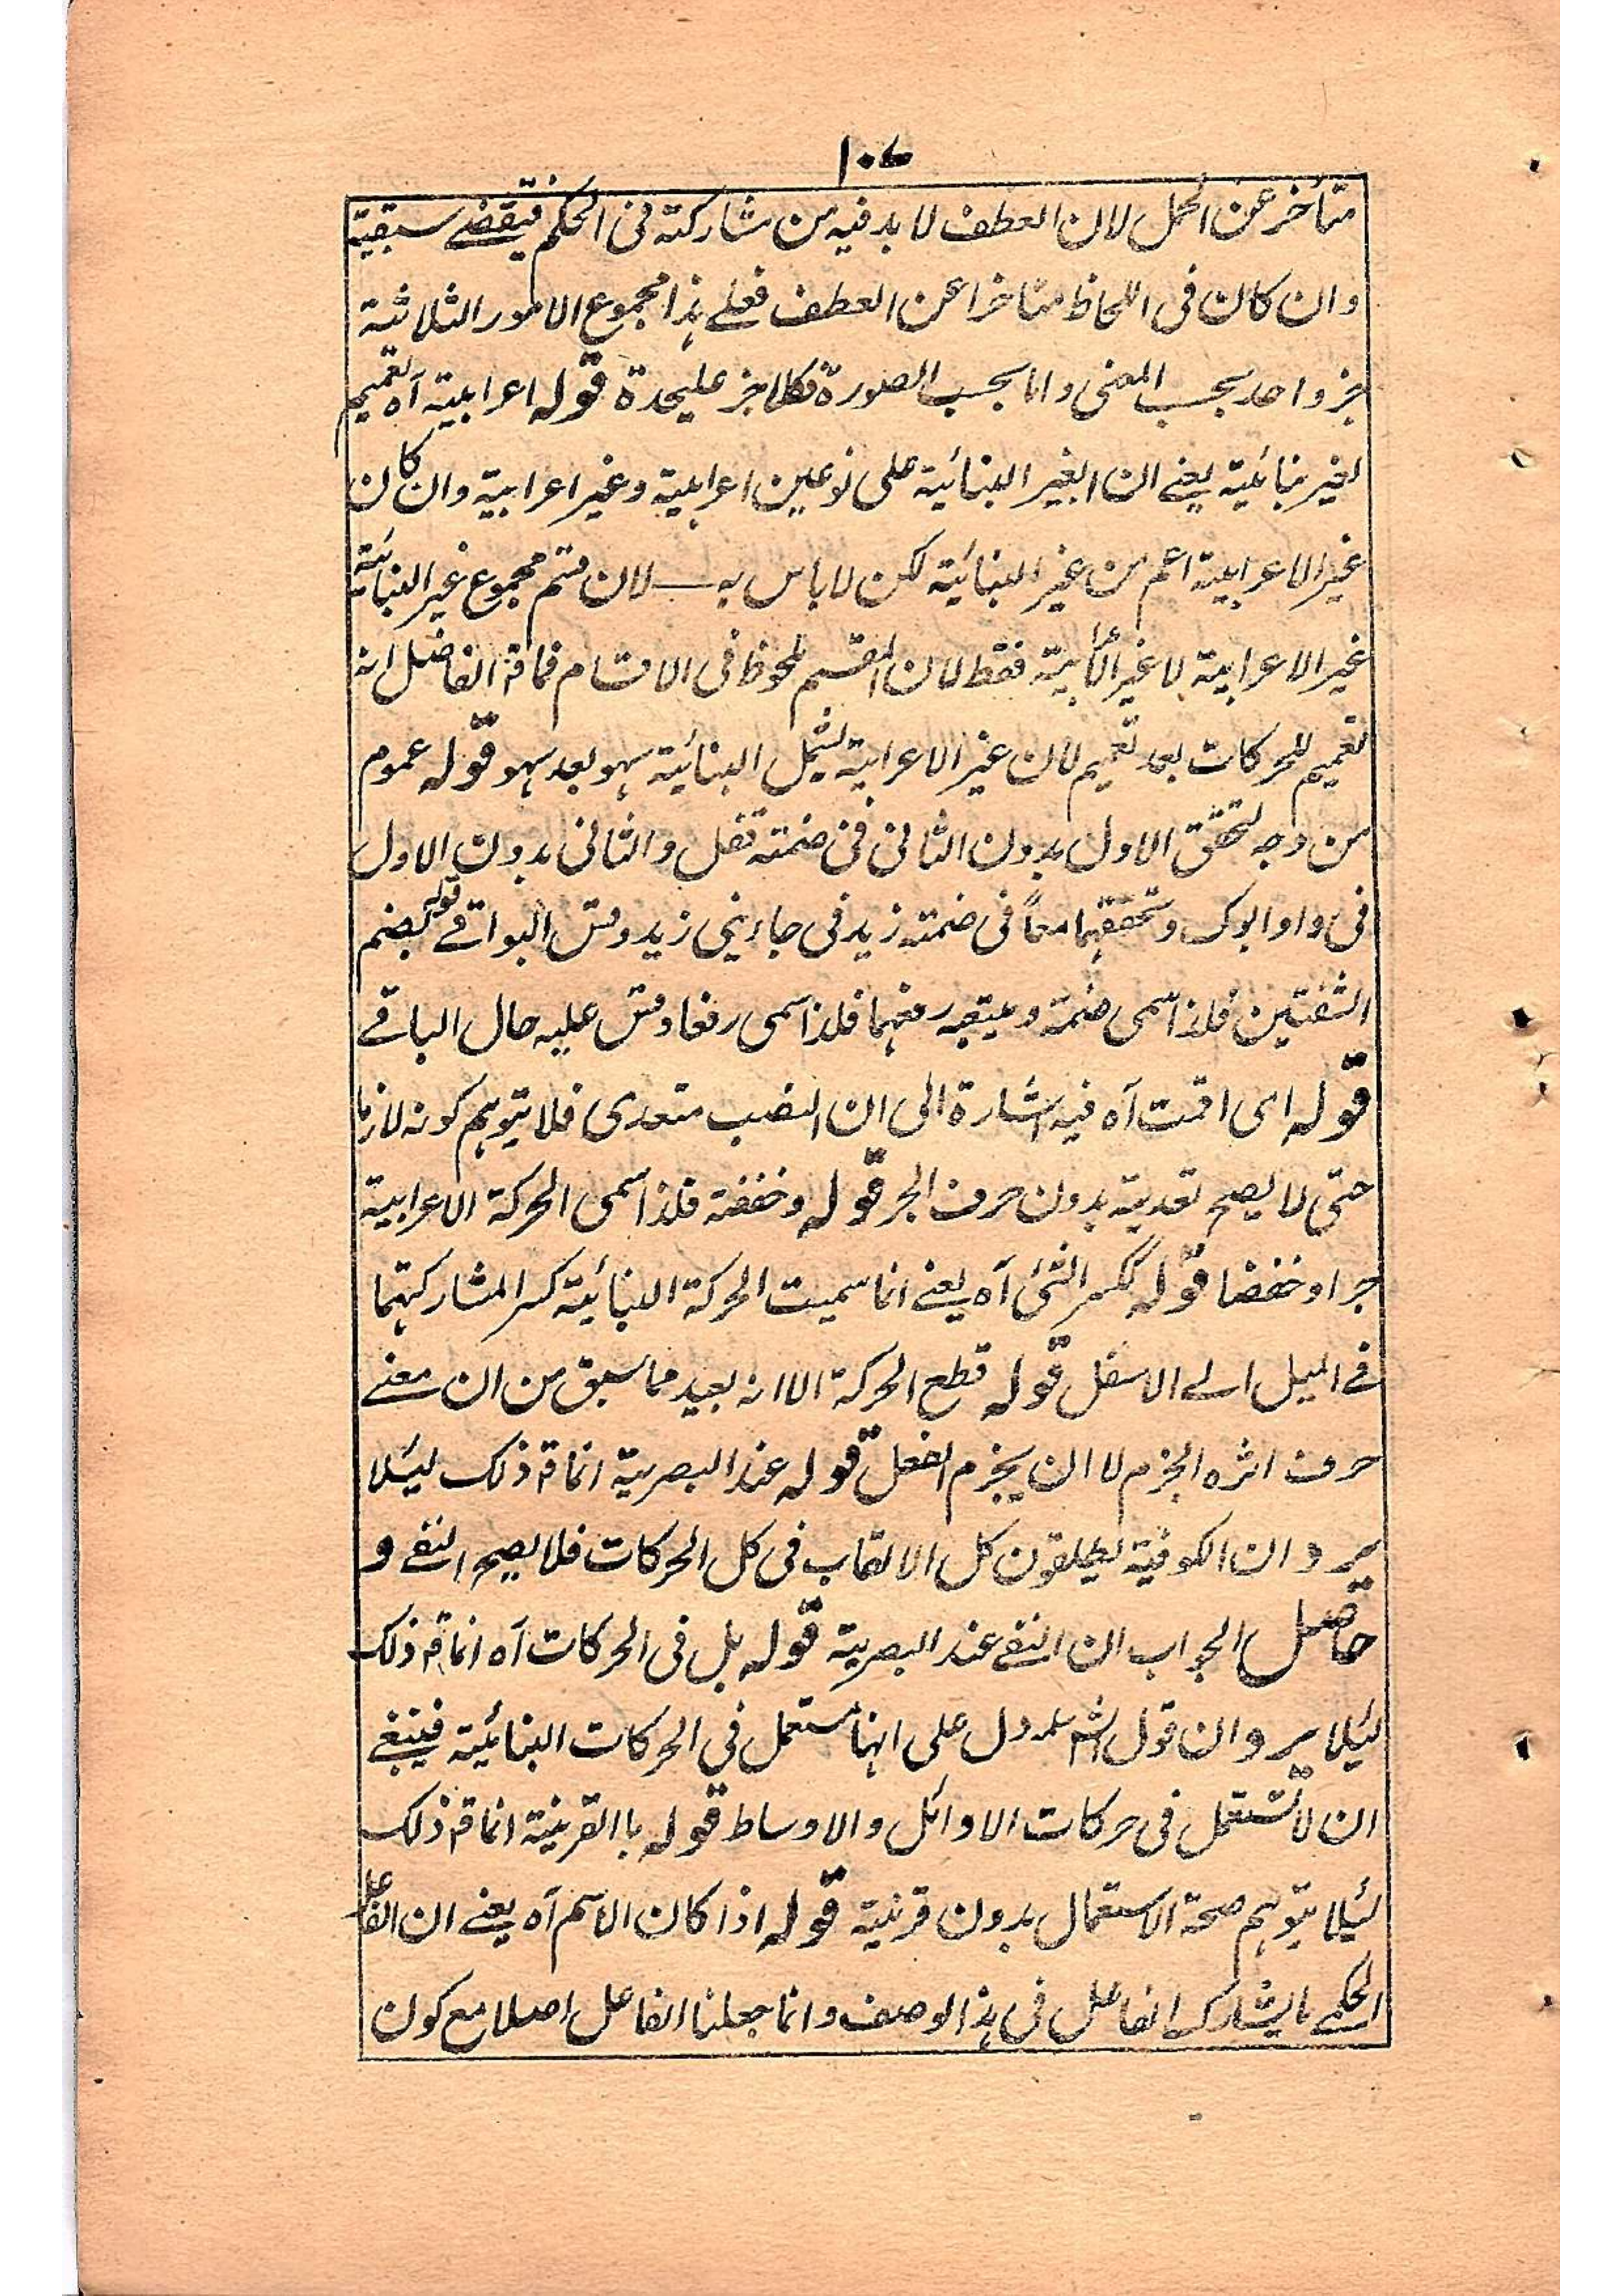 ١٠٧
متأخر عن الحمل لان العطف لا بد فيه من مشاركته فى الحكم فيقتضے سبقيته
وان كان فى اللحاظ متاخرا عن العطف فعلے هذا مجموع الامور الثلاثة
جزو احد بحسب المعنى واما بحسب الصورة فكل جزء عليحدة قوله اعرابية آه تعميم
لغير بنائية يعنے ان الغير البنائية على نوعين اعرابية وغير اعرابية وان كان
غير الاعرابية اعم من غير البنائية لكن لا باس به لان قسم مجموع غير البنائية
غير الاعرابية لا غير الاعرابية فقط لان المقسم ملحوظ فى الاقسام فماقة الفاضل انه
تعميم للحركات بعد تعميم لان غير الاعرابية يشمل البنائية سهو بعد سهو قوله عموم
من وجه لتحقق الاول بدون الثانى فى ضمته قفل والثانى بدون الاول
فى واو ابوك وتحققهما معاً فى ضمته زيد فى جاءنى زيد وقس البواقے قوله بضم
الشفتين فلذا سمى ضمة ويتبعه رفعهما فلذا سمى رفعا وقس عليه حال الباقے
قوله اى اقمت آه فيه اشارة الى ان النصب متعدى فلا يتوهم كونه لازما
حتى لا يصح تعديته بدون حرف الجر قوله وخفضة فلذا سمى الحركة الاعرابية
جرا وخفضا قوله ككسر الشئ آه يعنے انما سميت الحركة البنائية كسرا لمشاركتهما
فے الميل الے الاسفل قوله قطع الحركة الا انه بعيد مما سبق من ان معنے
حرف اثره الجزم لا ان يجزم الفعل قوله عند البصرية انماقة ذلك ليئلا
يرد ان الكوفية يطلقون كل الالقاب فى كل الحركات فلا يصح النفے و
حاصل الجواب ان النفے عند البصرية قوله بل فى الحركات آه انماقة ذلك
ليئلا يرد ان قول الش يدل على انها مستعمل فى الحركات البنائية فينبغے
ان لا تستعمل فى حركات الاوائل والاوساط قوله باالقرينة انماقة ذلك
ليئلا يتوهم صحة الاستعمال بدون قرينة قوله اذا كان الاسم آه يعنے ان الفاعل
الحكمے ما يشارك الفاعل فى هذا الوصف وانما جعلنا الفاعل اصلا مع كون